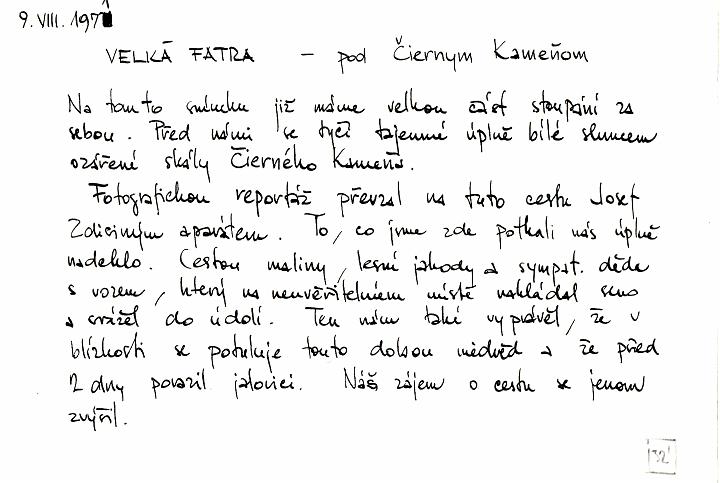 9. VIII. 1971
VELKÁ FATRA – pod Čiernym Kameňom
Na tomto snímku již máme velkou část stoupání za
sebou. Před námi se tyčí tajemné úplně bílé sluncem
ozářené skály Čierného Kameňa.
Fotografickou reportáž převzal na tuto cestu Josef
Zdiciným aparátem. To, co jsme zde potkali nás úplně
nadchlo. Cestou maliny, lesní jahody a sympat. děda
s vozem, který na neuvěřitelném místě nakládal seno
a svážel do údolí. Ten nám také vyprávěl, že v
blízkosti se potuluje touto dobou medvěd a že před
2 dny porazil jalovici. Náš zájem o cestu se jenom
zvýšil.
32